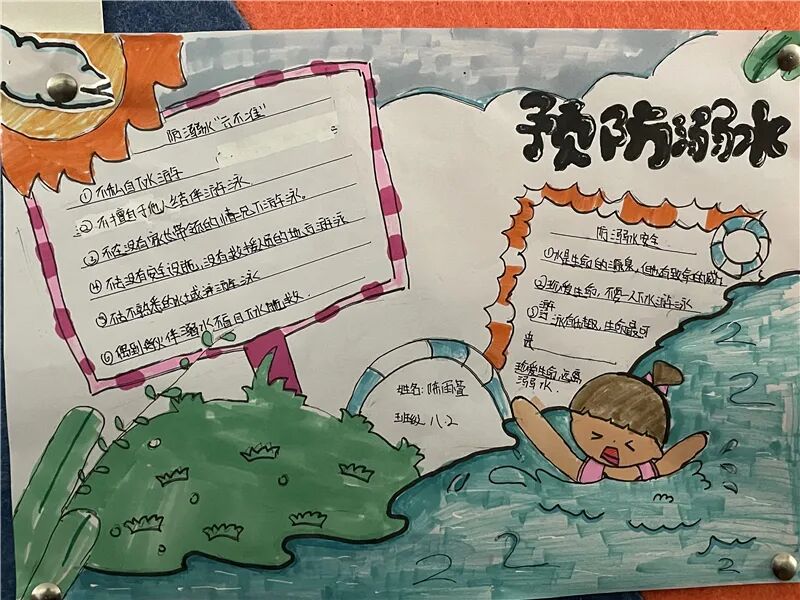 预防溺水
防溺水“六不准”
①不私自下水游泳
②不擅自于他人结伴游泳.
③不在没有家长带领的情况下游泳
④不去没有安全设施,没有救援人员的地方游泳
⑤不去不熟悉的水域游泳
⑥遇到伙伴溺水不盲目下水施救.
防溺水安全
①水是生命的源泉,但也有致命的威胁
②珍爱生命,不要一人下水游泳
③游泳有乐趣,生命最可
贵
珍爱生命,远离
溺水.
姓名:陈雨萱
班级 八.2